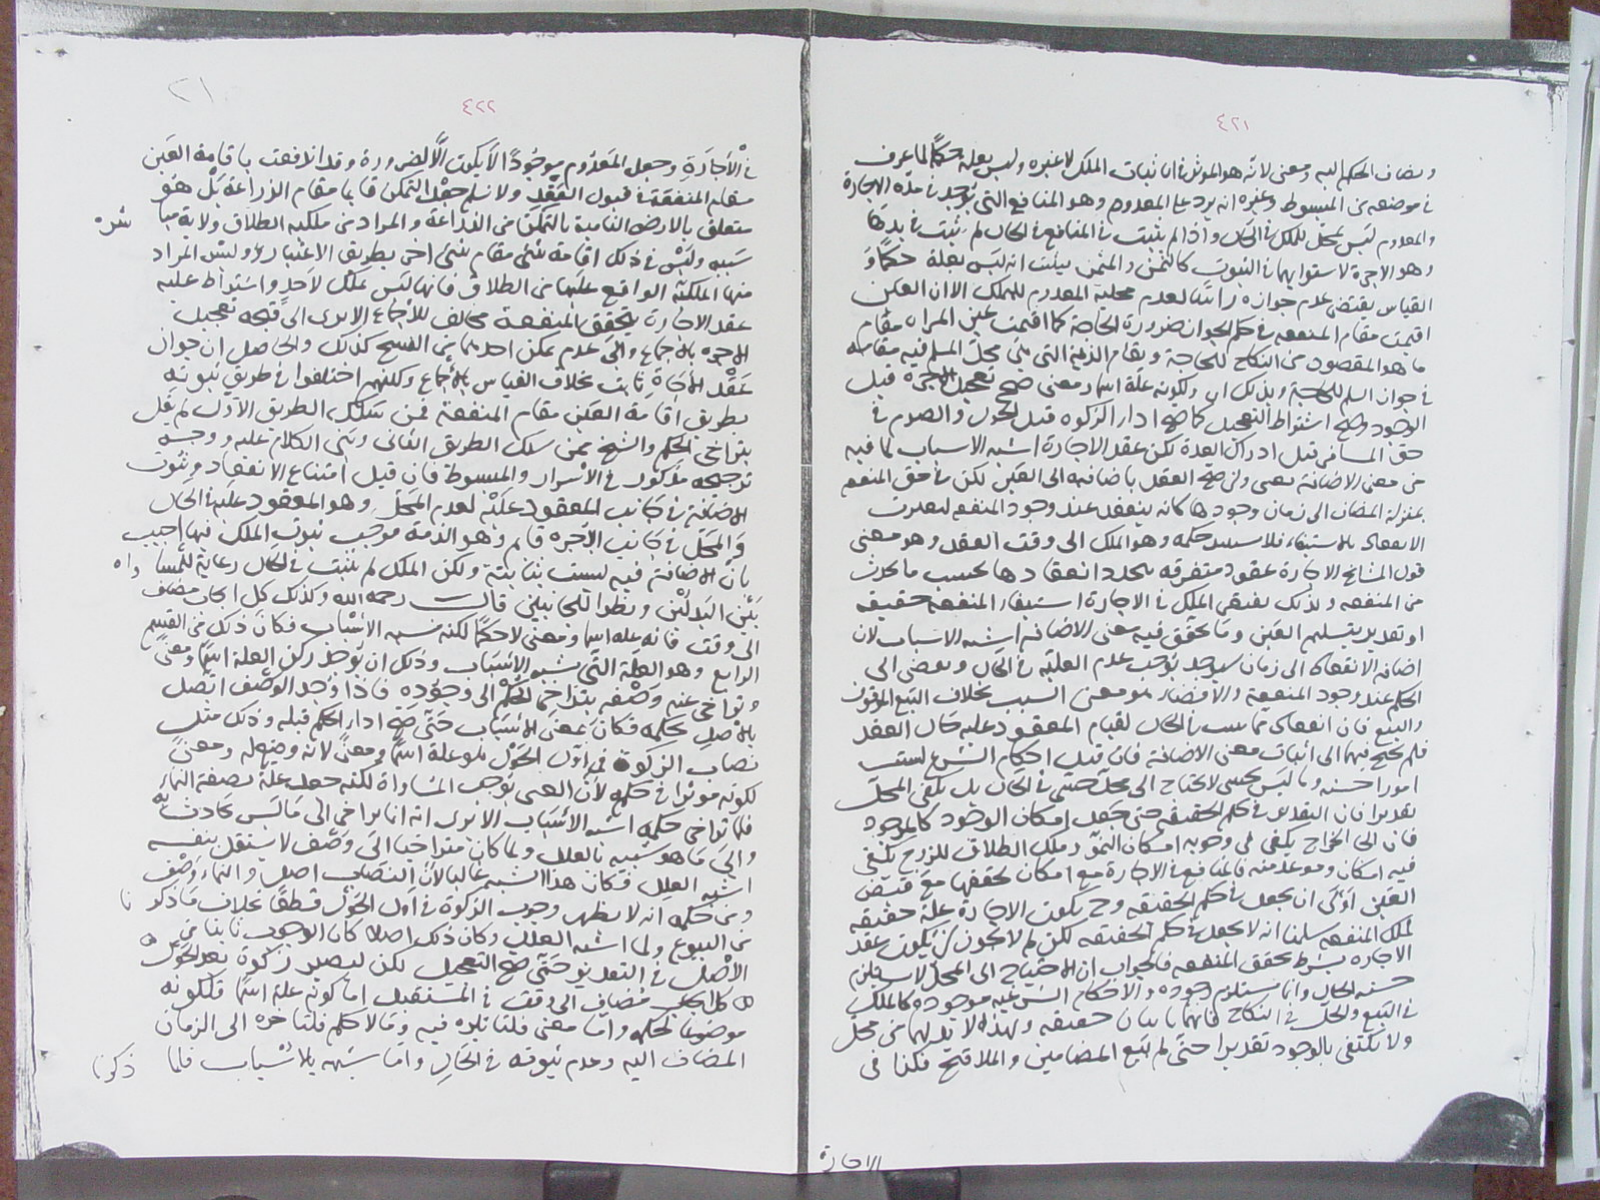 ٤٢١
ويضاف الحكم اليه ومعنى لانه هو الموثر في اثبات الملك لا غيره وليس بعلة حكمًا لما عرف
في موضعه من المبسوط وغيره انه يرد على المعدوم وهو المنافع التي توجد في مدة الاجارة
والمعدوم ليس بمحل للملك في الحال واذا لم يثبت في المنافع في الحال لم يثبت في بدلها
وهو الاجرة لاستوائهما في الثبوت كالثمن والمثمن فثبت انه ليس بعلة حكمًا و
القياس يقتضي عدم جوازه راسًا لعدم محلية المعدوم للتملك الا ان العين
اقيمت مقام المنفعه في حكم الجواز ضرورة الحاجة كما اقيمت عين المراه مقام
ما هو المقصود من النكاح للحاجة ويقام الذمة التي هي محل المسلم فيه مقامه
في جواز السلم للحاجة ولذلك اي ولكونه علة اسما ومعنى صح تعجيل الاجره قبل
الوجود وصح اشتراط التعجيل كما صح اداء الزكوه قبل الحول والصوم في
حق المسافر قبل ادراك العدة لكن عقد الاجارة اشبه الاسباب لما فيه
من معنى الاضافة يعني وان صح العقد باضافته الى العين لكن في حق المنفعه
بمنزلة المضاف الى زمان وجودها كانه ينعقد عند وجود المنفعه ليقترن
الانعقاد بالاستيفاء فلا يستند حكمه وهو الملك الى وقت العقد وهو معنى
قول المشايخ الاجارة عقود متفرقه يتجدد انعقادها بحسب ما يحدث
من المنفعه ولذلك يقتضي الملك في الاجارة استيفاء المنفعه حقيقه
او تقديرا بتسليم العين وما تحقق فيه معنى الاضافة اشبه الاسباب لان
اضافة الانعقاد الى زمان سيوجد يوجب عدم العلية في الحال ويفضي الى
الحكم عند وجود المنفعة والافضاء هو معنى السبب بخلاف البيع الموقوف
والبيع فان انعقاد ثابت في الحال لقيام المعقود عليه حال العقد
فلم نحتج فيهما الى اثبات معنى الاضافة فان قيل احكام الشرع ليست
امورا حسيه وما ليس بحسي لا يحتاج الى محل حسي في الحال بل يكفي المحل
تقديرا فان التقدير في حكم الحقيقه حتى جعل امكان الوجود كالموجود
فان الخراج يكفي في وجوبه امكان النمو وملك الطلاق للزوج يكفي
فيه امكان وهو علامنه فالمنافع في الاجارة مع امكان تحققها مع قبض
العين اولى ان يجعل في حكم الحقيقه وح يكون الاجارة علة حقيقه
لملك المنفعه سلمنا انه لا يجعل في حكم الحقيقه لكن لم لا يجوز ان يكون عقد
الاجارة بشرط تحقق المنفعه فالجواب ان الاحتياج الى المحل لا يستلزم
حسيه الحال وانما يستلزم وجوده والاحكام الشرعيه موجوده كالملك
في البيع والحل في النكاح فانهما ثابتان حقيقه ولهذا لا بد لهما من محل
ولا يكتفى بالوجود تقديرا حتى لم يبع المضامين والملاقيح فكذا في
الاجارة
٢١
٤٢٢
في الاجارة وجعل المعدوم موجودًا لا يكون الا لضرورة وقد اندفعت باقامة العين
مقام المنفعة في قبول العقد ولا نسلم جعل التمكن قايما مقام الزراعة بل هو
متعلق بالارض النامية بالتمكن من الزراعة والمراد من ملكيه الطلاق ولاية مباشرة
سببه وليس في ذلك اقامة شئ مقام شئ اخر بطريق الاعتبار وليس المراد
منها الملكية الواقع عليها من الطلاق فانها ليس بملك لاحد واشتراط عليه
عقد الاجارة بتحقق المنفعة مخالف للاجماع الا يرى الى صحة تعجيل
الاجره بالاجماع والى عدم تمكن احدهما من الفسخ كذلك والحاصل ان جواز
عقد الاجارة ثابت بخلاف القياس بالاجماع ولكنهم اختلفوا في طريق ثبوته
بطريق اقامة العين مقام المنفعة فمن سلك الطريق الاول لم يقل
بتراخي الحكم والشيخ ممن سلك الطريق الثاني وبنى الكلام عليه ووجه
ترجيحه مذكور في الاسرار والمبسوط فان قيل امتناع الانعقاد وثبوت
الاضافة في جانب المعقود عليه لعدم المحل وهو المعقود عليه في الحال
والمحل في جانب الاجره قايم وهو الذمة موجب ثبوت الملك فيها اجيب
بان الاضافة فيه ليست بثابتة ولكن الملك لم يثبت في الحال رعاية للمساواة
بين البدلين ونظرا للجانبين قال رحمه الله وكذلك كل ايجاب مضاف
الى وقت فانه علة اسما ومعنى لا حكمًا لكنه يشبه الاسباب فكان ذلك من القسم
الرابع وهو العلة التي تشبه الاسباب وذلك ان يوجد ركن العلة اسمًا ومعنى
وتراخى عنه وصفه بتراخي الحكم الى وجوده فاذا وجد الوصف اتصل
بالاصل بحكمه فكان بمعنى الاسباب حتى يصح اداء الحكم قبله وذلك مثل
نصاب الزكوة في اول الحول هو علة اسمًا ومعنى لانه وضع له ومعنى
لكونه موثرا في حكمه لان الغنى يوجب المساواة لكنه جعل علة بصفة النماء
فلما تراخى حكمه اشبه الاسباب الا يرى انه انما تراخى الى ما ليس بحادث به
والى ما هو شبيه بالعلل ولما كان متراخيا الى وصف لا يستقل بنفسه
اشبه العلل فكان هذا الشبه غالبا لان النصاب اصل والنماء وصف
ومن حكمه انه لا يظهر وجوب الزكوة في اول الحول قطعًا بخلاف ما ذكرنا
من البيوع ولما اشبه العلل وكان ذلك اصلا كان الوجوب ثابتا من
الاصل في التقدير حتى صح التعجيل لكن ليصير زكوة بعد الحول
كل ايجاب مضاف الى وقت في المستقبل اما كونه علة اسمًا فلكونه
موضوعا لحكمه واما معنى فلتاثيره فيه واما لا حكم فلتاخره الى الزمان
المضاف اليه وعدم ثبوته في الحال واما شبهه بالاسباب فلما ذكرنا